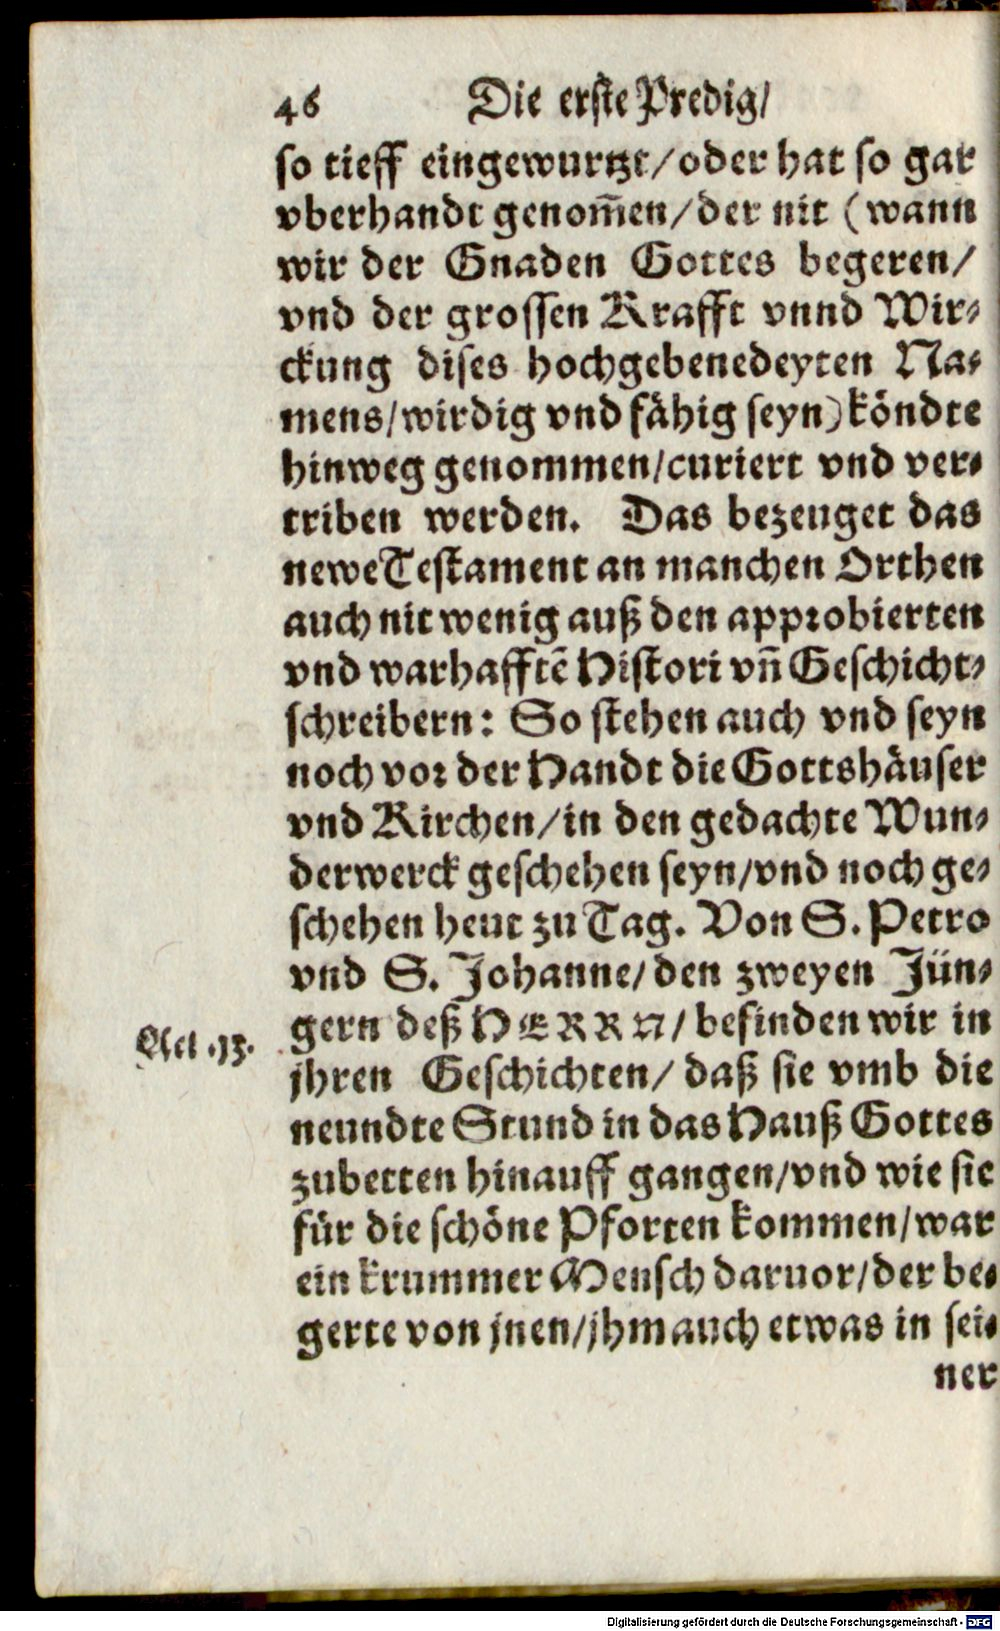 46 Die erste Predig/
so tieff eingewurtzt/oder hat so gar
vberhandt genom̃en/der nit (wann
wir der Gnaden Gottes begeren/
vnd der grossen Krafft vnnd Wir-
ckung dises hochgebenedeyten Na-
mens/wirdig vnd fähig seyn) köndte
hinweg genommen/curiert vnd ver-
triben werden. Das bezeuget das
newe Testament an manchen Orthen
auch nit wenig auß den approbierten
vnd warhafftẽ Histori vñ Geschicht-
schreibern: So stehen auch vnd seyn
noch vor der Handt die Gottshäuser
vnd Kirchen/in den gedachte Wun-
derwerck geschehen seyn/vnd noch ge-
schehen heut zu Tag. Von S. Petro
vnd S. Johanne/den zweyen Jün-
gern deß HERRN/befinden wir in
Act .13.
jhren Geschichten/daß sie vmb die
neundte Stund in das Hauß Gottes
zubetten hinauff gangen/vnd wie sie
für die schöne Pforten kommen/war
ein krummer Mensch daruor/der be-
gerte von jnen/jhm auch etwas in sei-
ner
Digitalisierung gefördert durch die Deutsche Forschungsgemeinschaft - DFG